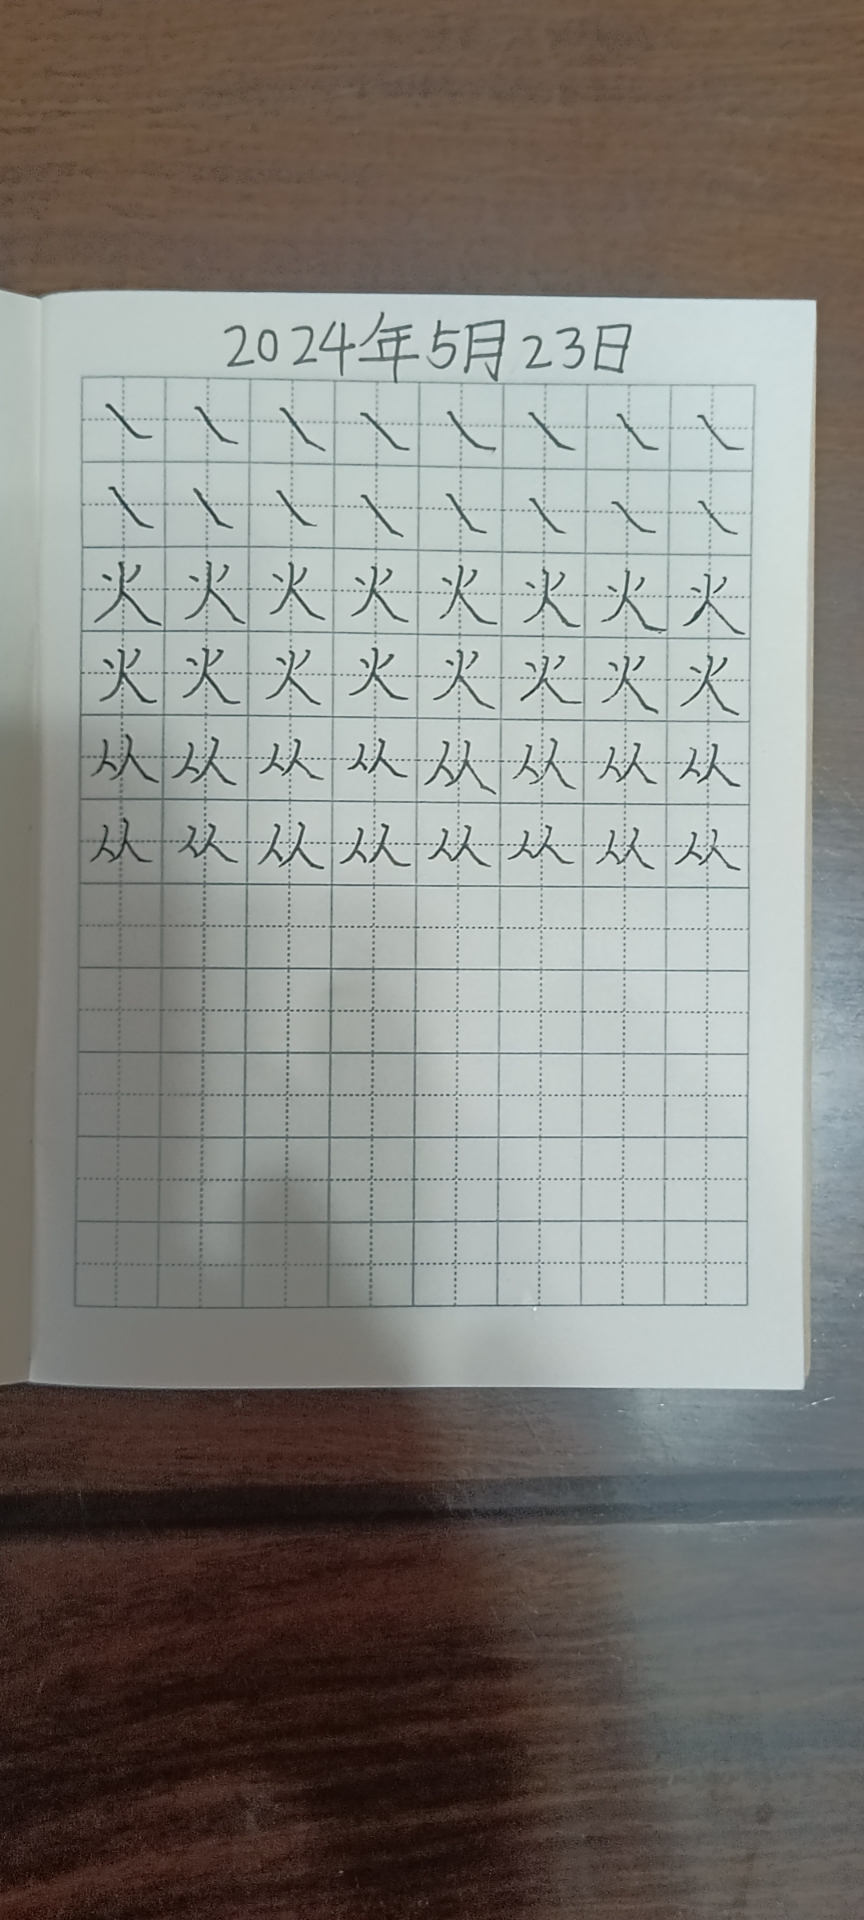 2024年5月23日
㇏ ㇏ ㇏ ㇏ ㇏ ㇏ ㇏ ㇏
㇏ ㇏ ㇏ ㇏ ㇏ ㇏ ㇏ ㇏
火 火 火 火 火 火 火 火
火 火 火 火 火 火 火 火
从 从 从 从 从 从 从 从
从 从 从 从 从 从 从 从